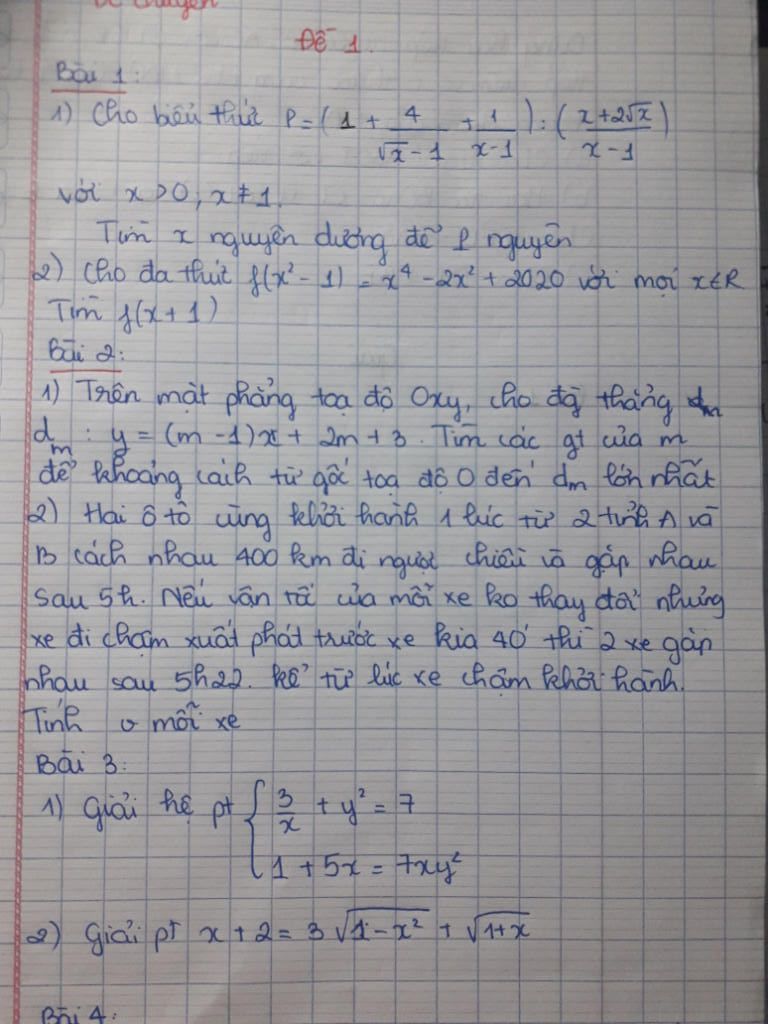 Đề chuyên
Đề 1.
Bài 1:
1) Cho biểu thức P = ( 1 + 4/(√x - 1) + 1/(x-1) ) : ( (x+2√x)/(x-1) )
với x > 0, x ≠ 1.
Tìm x nguyên dương để P nguyên
2) Cho đa thức f(x² - 1) = x⁴ - 2x² + 2020 với mọi x∈R
Tìm f(x+1)
Bài 2:
1) Trên mặt phẳng toạ độ Oxy, cho đg thẳng dm
dm : y = (m-1)x + 2m + 3. Tìm các gt của m
để khoảng cách từ gốc toạ độ O đến dm lớn nhất
2) Hai ô tô cùng khởi hành 1 lúc từ 2 tỉnh A và
B cách nhau 400 km đi ngược chiều và gặp nhau
sau 5h. Nếu vận tốc của mỗi xe ko thay đổi nhưng
xe đi chậm xuất phát trước xe kia 40' thì 2 xe gặp
nhau sau 5h22. kể từ lúc xe chậm khởi hành.
Tính v mỗi xe
Bài 3:
1) Giải hệ pt { 3/x + y² = 7
1 + 5x = 7xy²
2) Giải pt x + 2 = 3√(1-x²) + √(1+x)
Bài 4: